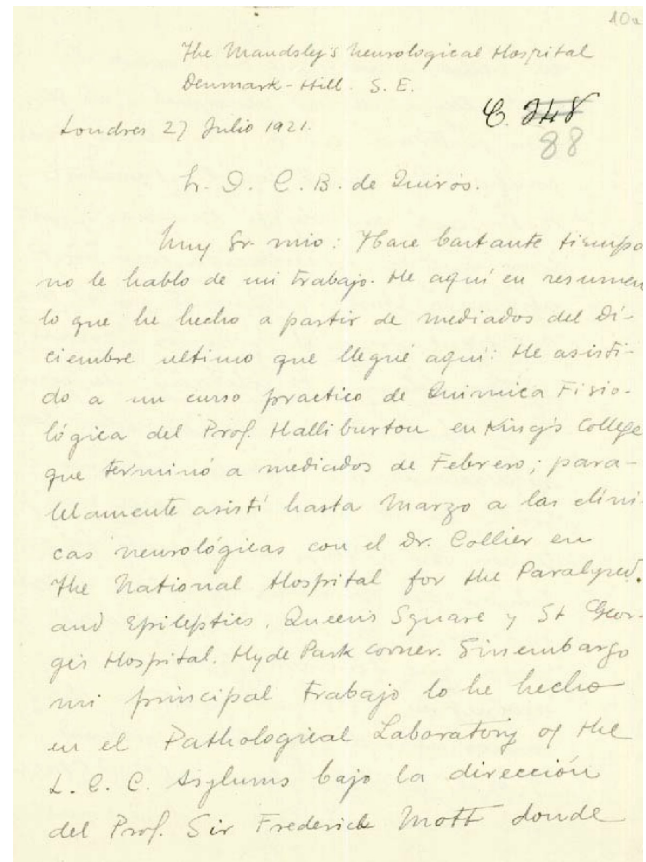 40a
The Maudsly's Neurological Hospital
Denmark-Hill. S. E.
C. 348
88
Londres 27 Julio 1921.
Sr. D. C. B. de Quirós.
Muy Sr. mio: Hace bastante tiempo
no le hablo de mi trabajo. He aquí en resumen
lo que he hecho a partir de mediados del Di-
ciembre ultimo que llegué aquí: He asisti-
do a un curso practico de Quimica Fisio-
lógica del Prof. Halliburton en King's College
que terminó a mediados de Febrero; para-
lelamente asistí hasta Marzo a las clíni-
cas neurológicas con el Dr. Collier en
The National Hospital for the Paralysed.
and Epileptics, Queen's Square y St Geor-
ge's Hospital. Hyde Park corner. Sin embargo
mi principal trabajo lo he hecho
en el Pathological Laboratory of the
L. C. C. Asylums bajo la dirección
del Prof. Sir Frederick Mott donde